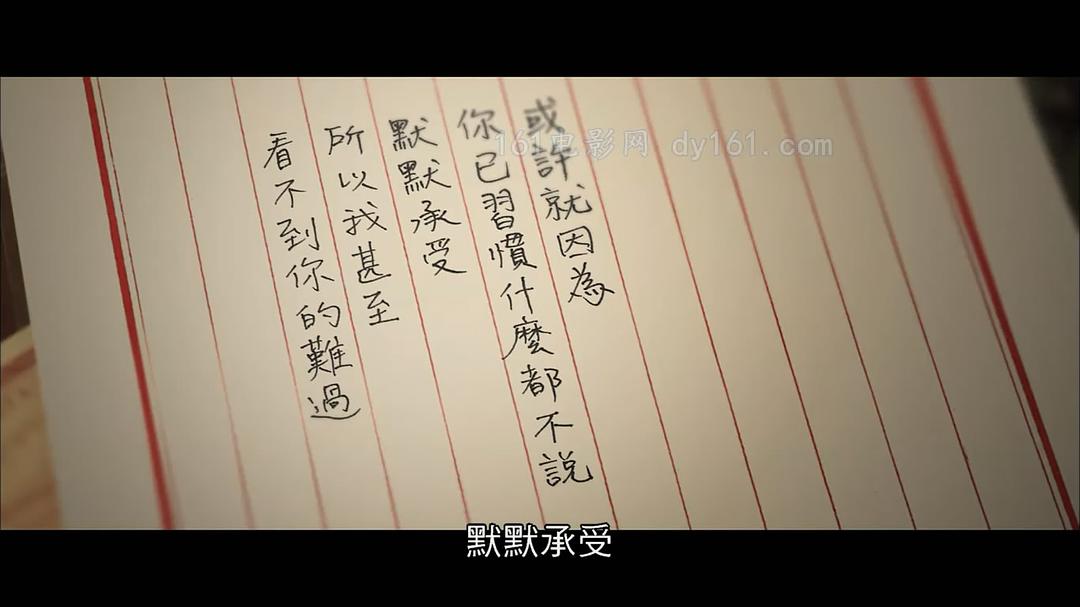 或許就因為
你已習慣什麼都不說
默默承受
所以我甚至
看不到你的難過
161电影网 dy161.com
默默承受